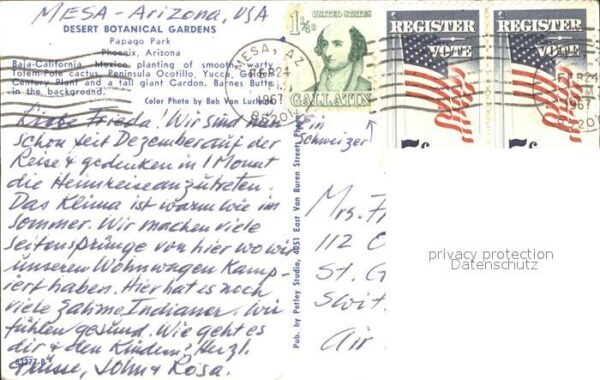 MESA - Arizona, USA
DESERT BOTANICAL GARDENS
Papago Park
Phoenix, Arizona
Baja-California, Mexico planting of smooth, warty
Totem Pole cactus, Peninsula Ocotillo, Yucca, Golden
Century Plant and a tall giant Cardon. Barnes Butte
in the background.
Color Photo by Bob Van Luchene
Liebe Frieda! Wir sind nun
schon seit Dezember auf der
Reise & gedenken in 1 Monat
die Heimreise anzutreten.
Das Klima ist warm wie im
Sommer. Wir machen viele
Seitensprünge von hier wo wir
unseren Wohnwagen Kamp-
iert haben. Hier hat es noch
viele zahme Indianer. Wir
fühlen gesund. Wie geht es
dir & den Kindern? Herzl.
Grüsse, John & Rosa.
Pub. by Petley Studio, 4051 East Van Buren Street, Phoenix
UNITED STATES
1¼¢
GALLATIN
MESA, AZ
FEB 24
1967
REGISTER
VOTE
5¢
REGISTER
VOTE
5¢
FEB 24
1967
in
Schweizer
Mrs. F
112 C
St. G
Swit
Air
privacy protection
Datenschutz